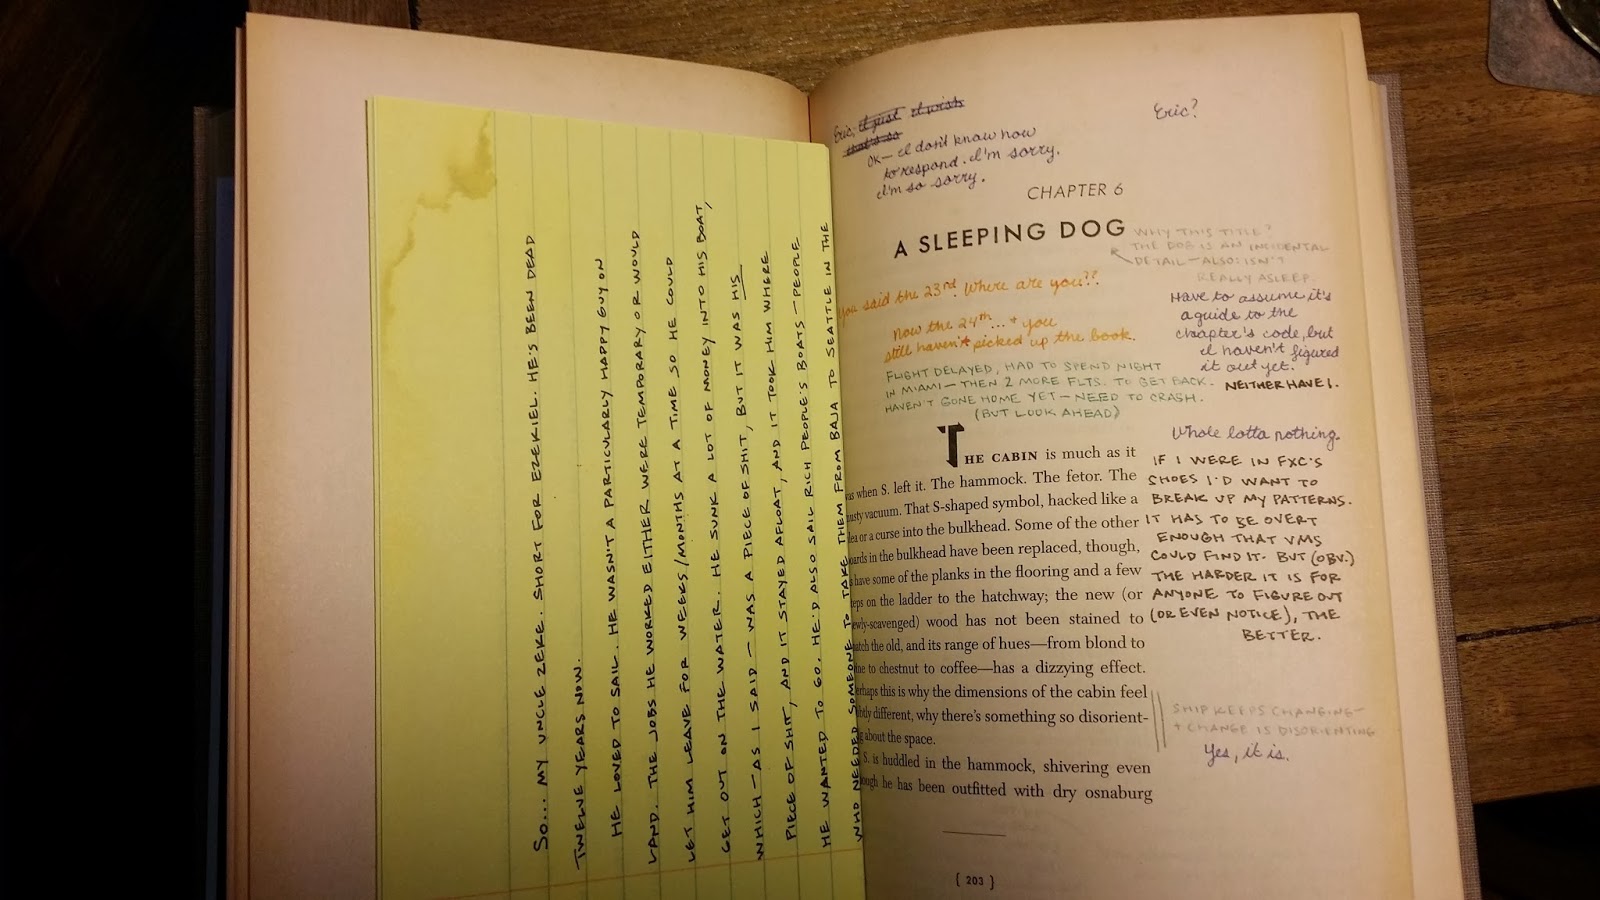 So... MY UNCLE ZEKE. SHORT FOR EZEKIEL. HE'S BEEN DEAD
TWELVE YEARS NOW.
HE LOVED TO SAIL. HE WASN'T A PARTICULARLY HAPPY GUY ON
LAND. THE JOBS HE WORKED EITHER WERE TEMPORARY OR WOULD
LET HIM LEAVE FOR WEEKS/MONTHS AT A TIME SO HE COULD
GET OUT ON THE WATER. HE SUNK A LOT OF MONEY INTO HIS BOAT,
WHICH—AS I SAID—WAS A PIECE OF SHIT, BUT IT WAS HIS
PIECE OF SHIT, AND IT STAYED AFLOAT, AND IT TOOK HIM WHERE
HE WANTED TO GO. HE'D ALSO SAIL RICH PEOPLE'S BOATS—PEOPLE
WHO NEEDED SOMEONE TO TAKE THEM FROM BAJA TO SEATTLE IN THE
Eric, it just it wish
that's so
OK—I don't know how
to respond. I'm sorry.
I'm so sorry.
Eric?
CHAPTER 6
A SLEEPING DOG
WHY THIS TITLE?
THE DOG IS AN INCIDENTAL
DETAIL—ALSO: ISN'T
REALLY ASLEEP.
Have to assume it's
a guide to the
chapter's code, but
I haven't figured
it out yet.
NEITHER HAVE I.
You said the 23rd. Where are you??
Now the 24th...+ you
still haven't picked up the book.
FLIGHT DELAYED, HAD TO SPEND NIGHT
IN MIAMI—THEN 2 MORE FLTS. TO GET BACK.
HAVEN'T GONE HOME YET—NEED TO CRASH.
(BUT LOOK AHEAD)
Whole lotta nothing.
IF I WERE IN FXC'S
SHOES I'D WANT TO
BREAK UP MY PATTERNS.
IT HAS TO BE OVERT
ENOUGH THAT VMS
COULD FIND IT. BUT (OBV.)
THE HARDER IT IS FOR
ANYONE TO FIGURE OUT
(OR EVEN NOTICE), THE
BETTER.
THE CABIN is much as it
was when S. left it. The hammock. The fetor. The
musty vacuum. That S-shaped symbol, hacked like a
or a curse into the bulkhead. Some of the other
in the bulkhead have been replaced, though,
have some of the planks in the flooring and a few
on the ladder to the hatchway; the new (or
wood has not been stained to
the old, and its range of hues—from blond to
to chestnut to coffee—has a dizzying effect.
this is why the dimensions of the cabin feel
different, why there's something so disorient-
about the space.
S. is huddled in the hammock, shivering even
he has been outfitted with dry osnaburg
SHIP KEEPS CHANGING—
+ CHANGE IS DISORIENTING
Yes, it is.
{ 203 }